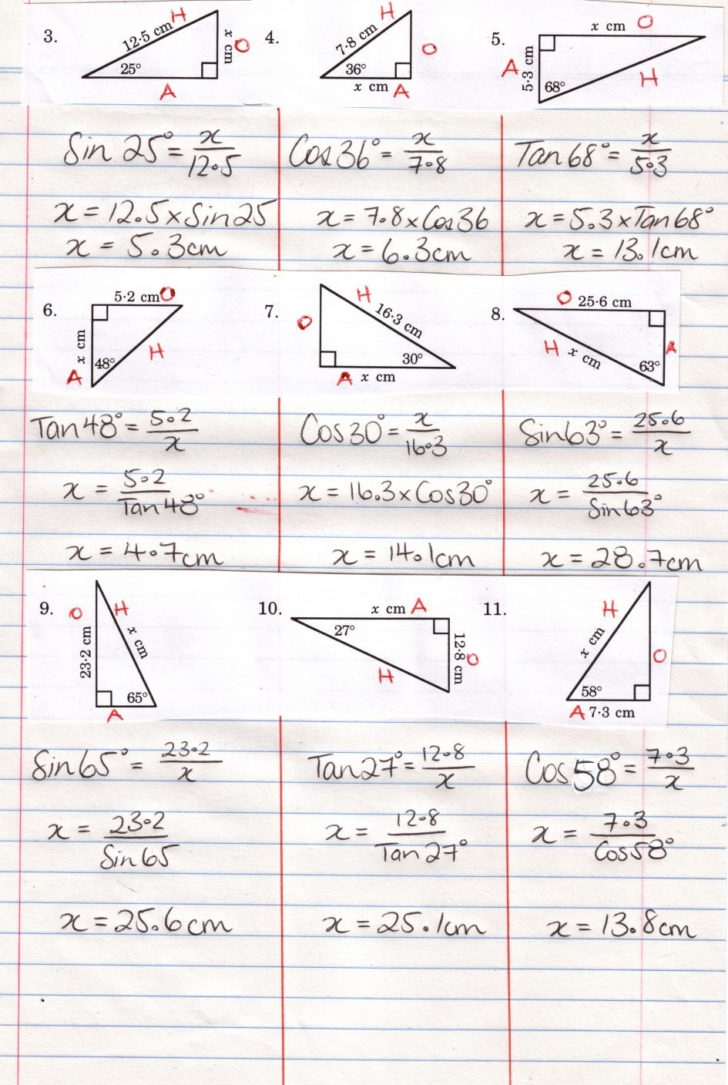 3.
12·5 cm
H
x cm
O
25°
A
4.
7·8 cm
H
O
36°
x cm
A
5.
x cm
O
A
5·3 cm
68°
H
Sin 25° = x/12.5
x = 12.5 x Sin 25
x = 5.3cm
Cos 36° = x/7.8
x = 7.8 x Cos 36
x = 6.3cm
Tan 68° = x/5.3
x = 5.3 x Tan 68°
x = 13.1cm
6.
5·2 cm
O
x cm
A
48°
H
7.
H
O
16·3 cm
30°
A
x cm
8.
O
25·6 cm
H
x cm
A
63°
Tan 48° = 5.2/x
x = 5.2/Tan 48°
x = 4.7cm
Cos 30° = x/16.3
x = 16.3 x Cos 30°
x = 14.1cm
Sin 63° = 25.6/x
x = 25.6/Sin 63°
x = 28.7cm
9.
O
H
23·2 cm
x cm
65°
A
10.
x cm
A
27°
12·8 cm
O
H
11.
H
x cm
O
58°
A
7·3 cm
Sin 65° = 23.2/x
x = 23.2/Sin 65
x = 25.6cm
Tan 27° = 12.8/x
x = 12.8/Tan 27°
x = 25.1cm
Cos 58° = 7.3/x
x = 7.3/Cos 58°
x = 13.8cm